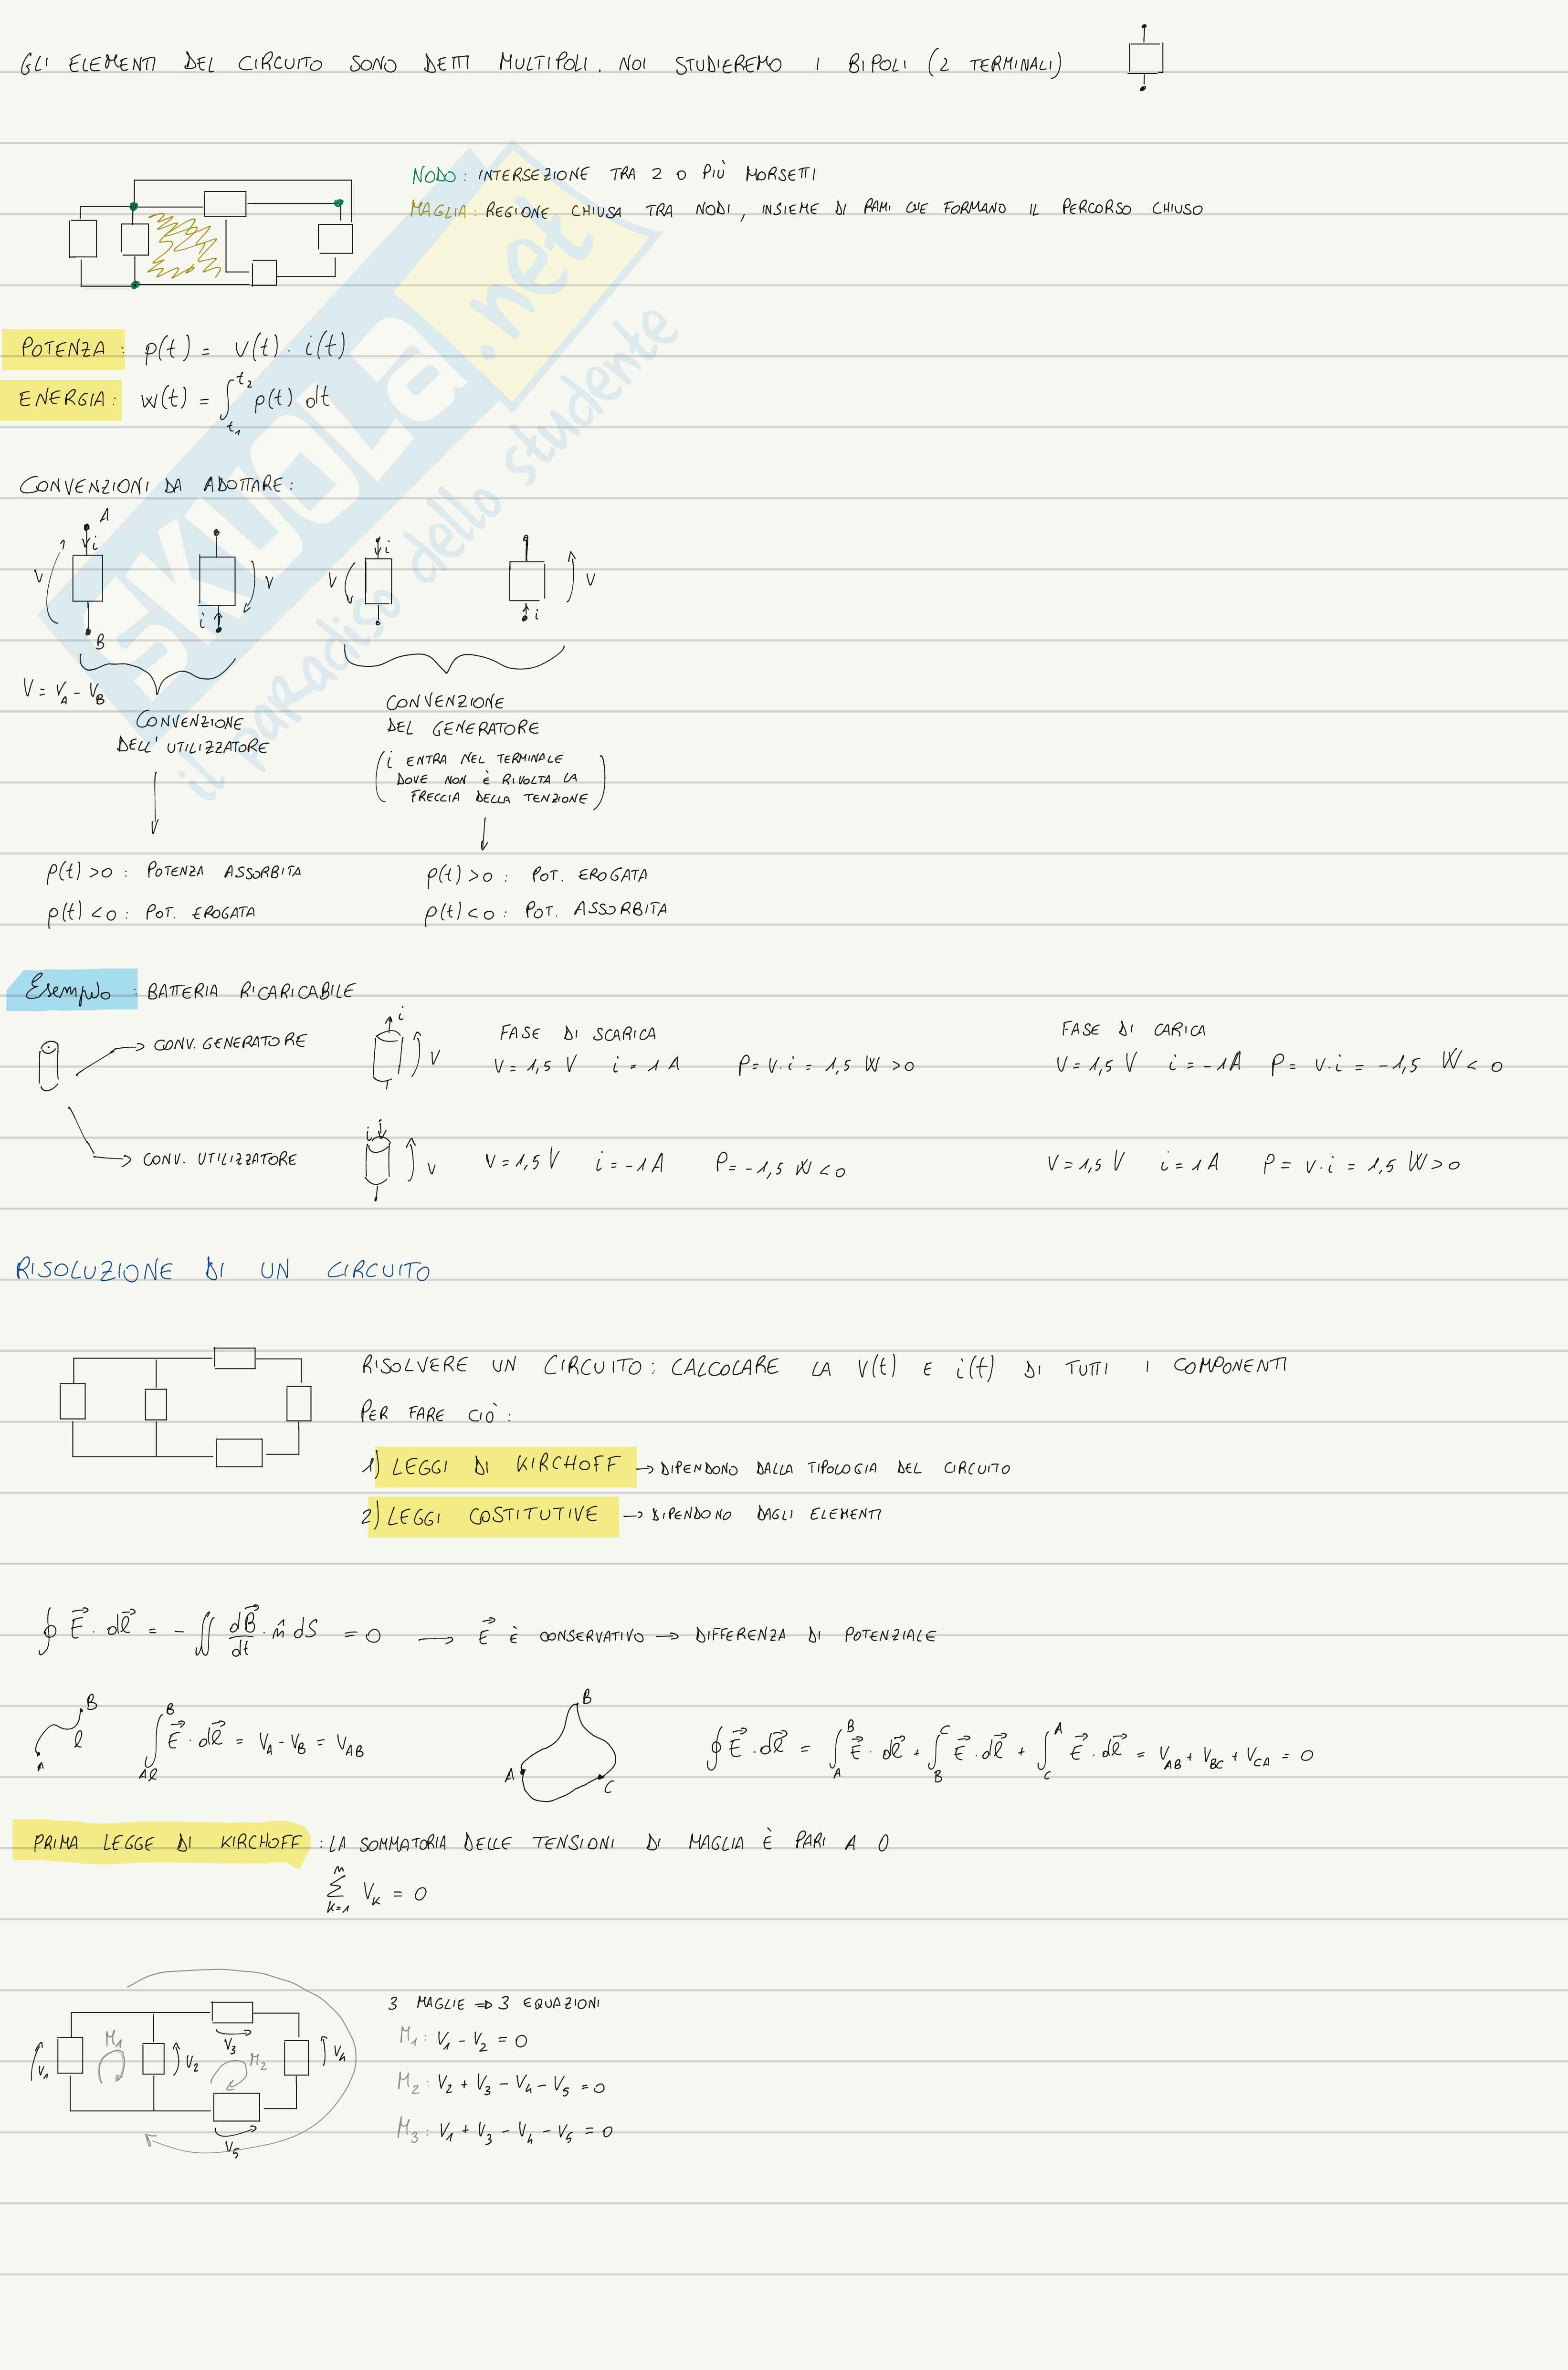 GLI ELEMENTI DEL CIRCUITO SONO DETTI MULTIPOLI. NOI STUDIEREMO I BIPOLI (2 TERMINALI)
NODO: INTERSEZIONE TRA 2 O PIÙ MORSETTI
MAGLIA: REGIONE CHIUSA TRA NODI, INSIEME DI RAMI CHE FORMANO IL PERCORSO CHIUSO
SKUOLA.net
il paradiso dello studente
POTENZA: p(t) = v(t) · i(t)
ENERGIA: w(t) = ∫_{t1}^{t2} p(t) dt
CONVENZIONI DA ADOTTARE:
A
i
V
B
V
i
V
i
V
i
V = V_A - V_B
CONVENZIONE
DELL'UTILIZZATORE
CONVENZIONE
DEL GENERATORE
(i ENTRA NEL TERMINALE
DOVE NON È RIVOLTA LA
FRECCIA DELLA TENZIONE)
p(t) > 0 : POTENZA ASSORBITA
p(t) < 0 : POT. EROGATA
p(t) > 0 : POT. EROGATA
p(t) < 0 : POT. ASSORBITA
Esempio : BATTERIA RICARICABILE
→ CONV. GENERATORE
i
V
FASE DI SCARICA
V = 1,5 V i = 1 A P = V·i = 1,5 W > 0
FASE DI CARICA
V = 1,5 V i = -1A P = V·i = -1,5 W < 0
→ CONV. UTILIZZATORE
i
V
V = 1,5 V i = -1 A P = -1,5 W < 0
V = 1,5 V i = 1 A P = V·i = 1,5 W > 0
RISOLUZIONE DI UN CIRCUITO
RISOLVERE UN CIRCUITO: CALCOLARE LA V(t) E i(t) DI TUTTI I COMPONENTI
PER FARE CIÒ:
1) LEGGI DI KIRCHOFF → DIPENDONO DALLA TIPOLOGIA DEL CIRCUITO
2) LEGGI COSTITUTIVE → DIPENDONO DAGLI ELEMENTI
∮ E⃗ · dl⃗ = - ∬ dB⃗/dt · n̂ dS = 0 → E⃗ È CONSERVATIVO → DIFFERENZA DI POTENZIALE
A l B
∫_{Al}^{B} E⃗ · dl⃗ = V_A - V_B = V_AB
A B C
∮ E⃗ · dl⃗ = ∫_A^B E⃗ · dl⃗ + ∫_B^C E⃗ · dl⃗ + ∫_C^A E⃗ · dl⃗ = V_AB + V_BC + V_CA = 0
PRIMA LEGGE DI KIRCHOFF : LA SOMMATORIA DELLE TENSIONI DI MAGLIA È PARI A 0
∑_{k=1}^{n} V_k = 0
V1 M1 V2 V3 M2 V4 V5
3 MAGLIE ⇒ 3 EQUAZIONI
M1: V1 - V2 = 0
M2: V2 + V3 - V4 - V5 = 0
M3: V1 + V3 - V4 - V5 = 0